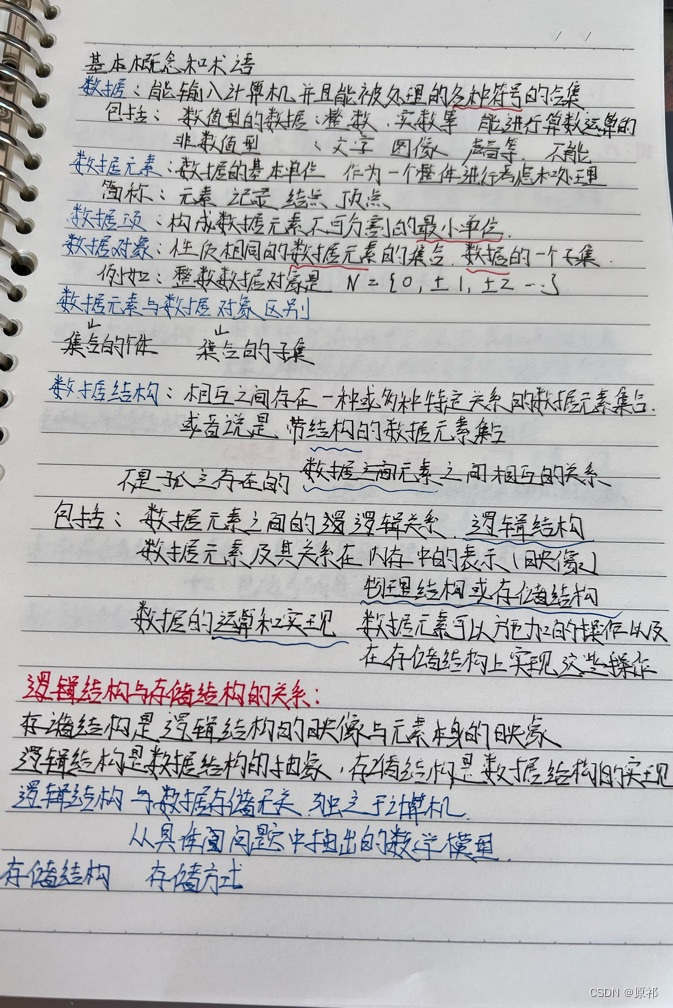 基本概念和术语
数据：能输入计算机并且能被处理的各种符号的合集
包括：数值型的数据：整数、实数等 能进行算数运算的
非数值型 ：文字 图像 声音等、不能
数据元素：数据的基本单位 作为一个整体进行考虑和处理
简称：元素 记录 结点 顶点
数据项：构成数据元素不可分割的最小单位.
数据对象：性质相同的数据元素的集合、数据的一个子集.
例如：整数数据对象是 N = {0, ±1, ±2 …}
数据元素与数据对象区别
集合的个体 集合的子集
数据结构：相互之间存在一种或多种特定关系的数据元素集合.
或者说是 带结构的数据元素集合
不是孤立存在的 数据之间元素之间相互的关系
包括：数据元素之间的逻 逻辑关系. 逻辑结构
数据元素及其关系在内存中的表示（映像）
物理结构或存储结构
数据的运算和实现 数据元素可以施加的操作以及
在存储结构上实现这些操作
逻辑结构与存储结构的关系：
存储结构是逻辑结构的映像与元素本身的映象
逻辑结构是数据结构的抽象、存储结构是数据结构的实现
逻辑结构与数据存储无关 独立于计算机.
从具体问问题中抽出的数学模型.
存储结构 存储方式
CSDN @原祁